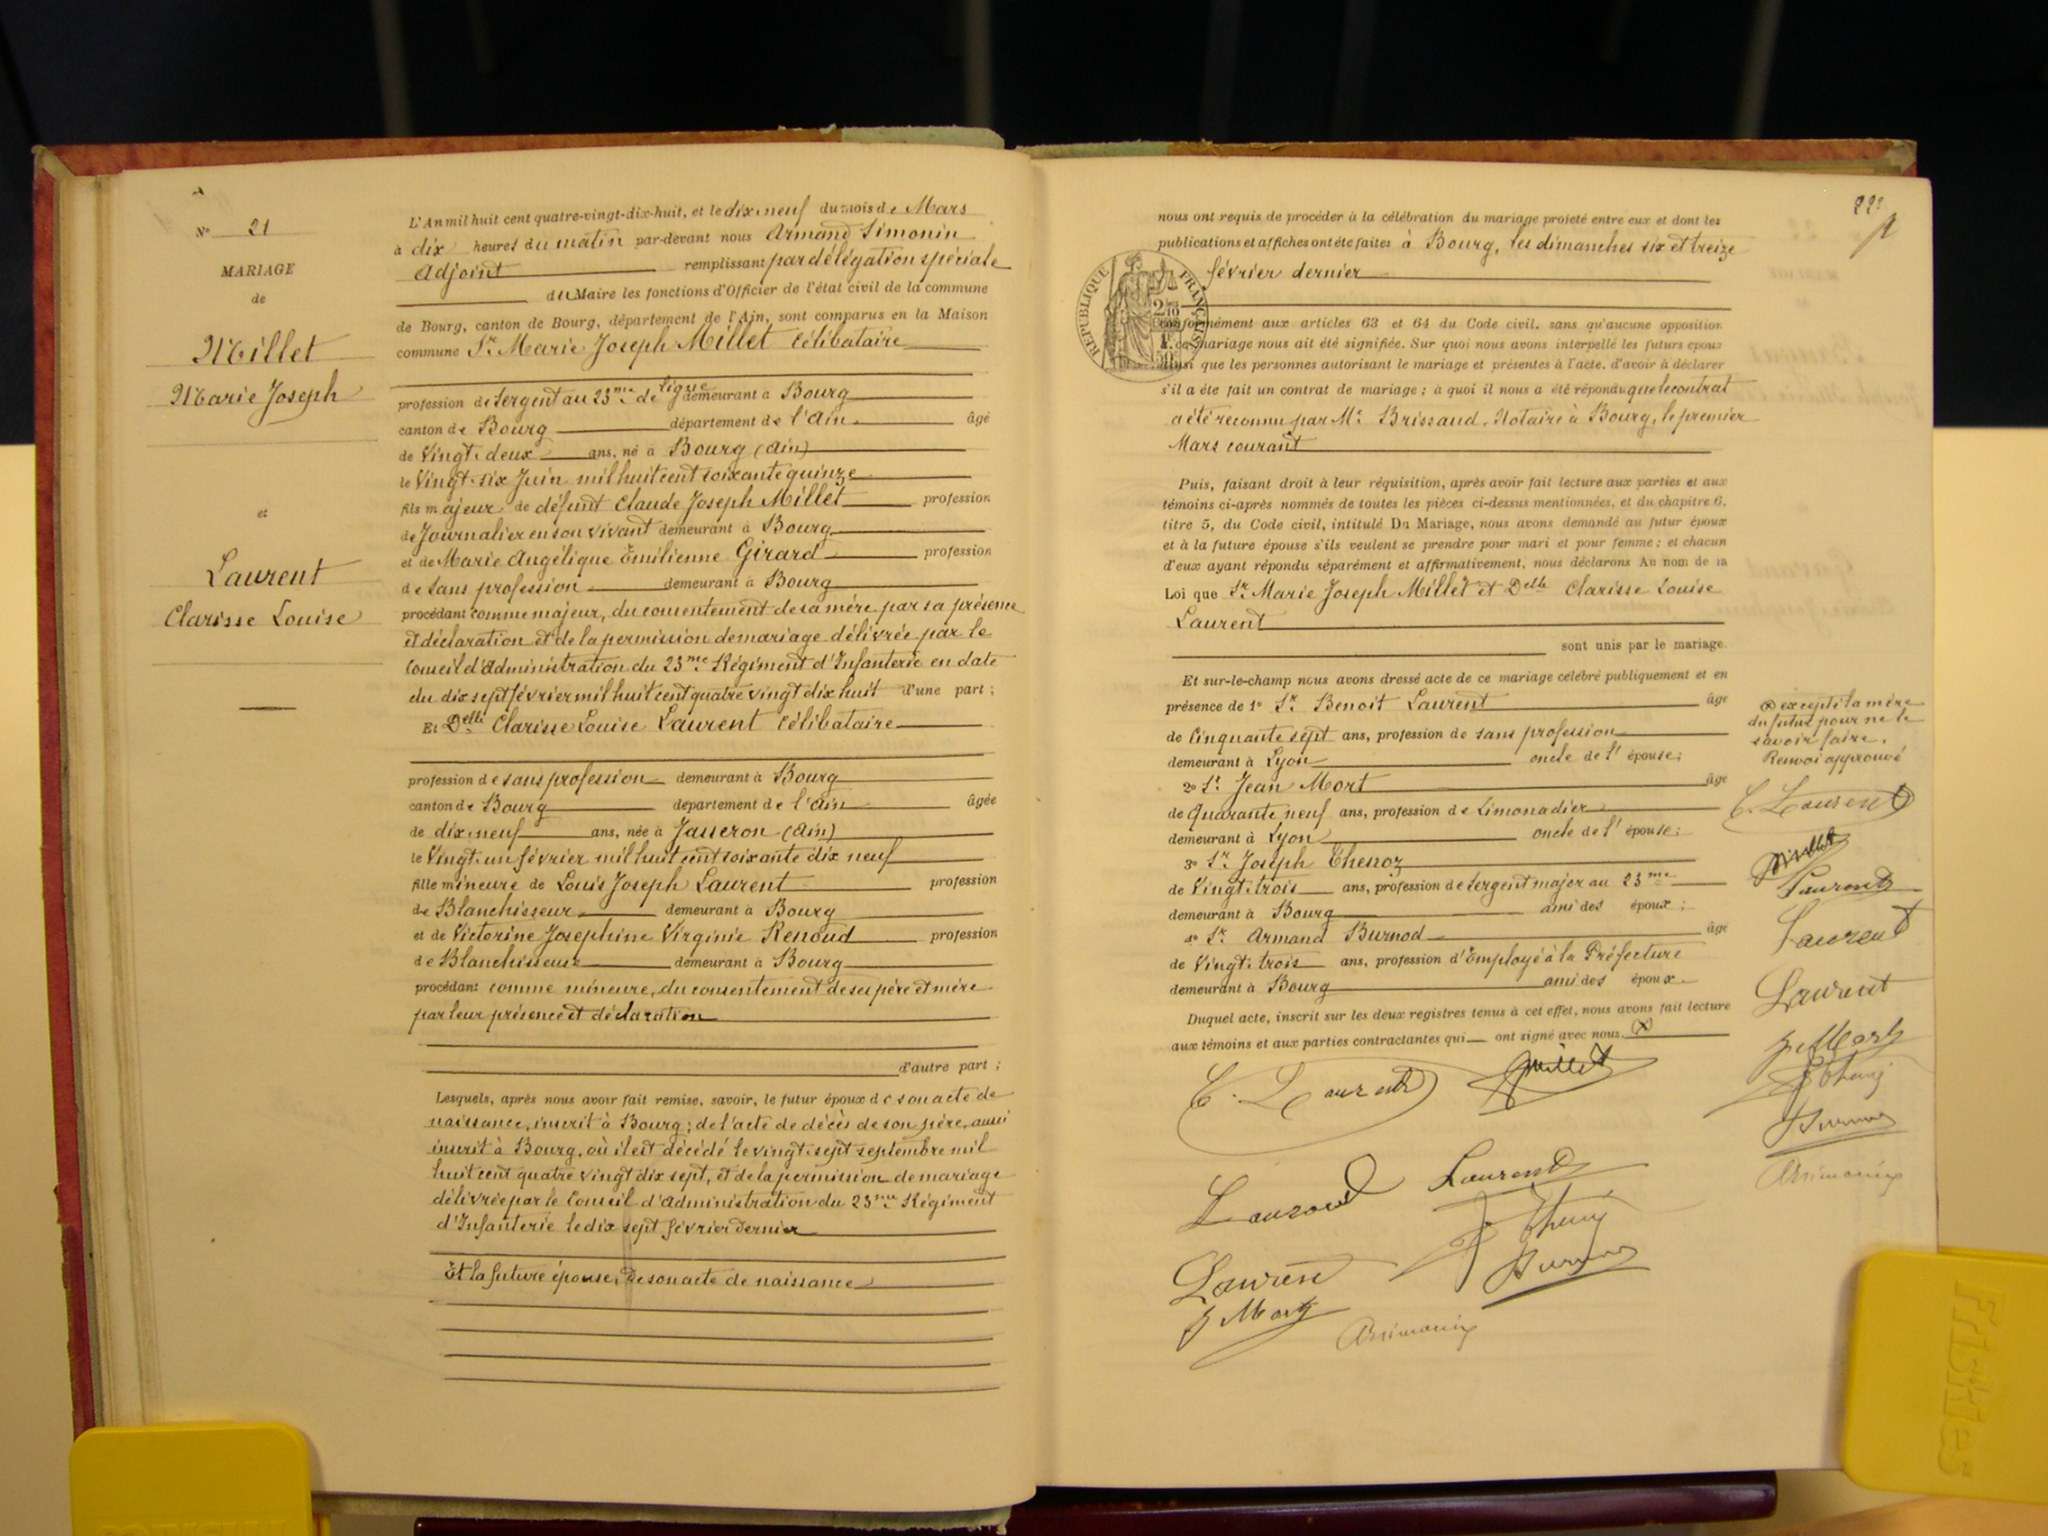 N° 21
MARIAGE
de
Millet
Marie Joseph
et
Laurent
Clarisse Louise
L'An mil huit cent quatre-vingt-dix-huit, et le dix neuf du mois de Mars
à dix heures du matin par-devant nous Armand Simonin
Adjoint remplissant par délégation spéciale
du Maire les fonctions d'Officier de l'état civil de la commune
de Bourg, canton de Bourg, département de l'Ain, sont comparus en la Maison
commune Sr. Marie Joseph Millet Célibataire
profession de Sergent au 23me de ligne demeurant à Bourg
canton de Bourg département de l'Ain âgé
de Vingt-deux ans, né à Bourg (Ain)
le Vingt-six Juin mil huit cent soixante quinze
fils majeur de défunt Claude Joseph Millet profession
de Journalier en son vivant demeurant à Bourg
et de Marie Angélique Emilienne Girard profession
de sans profession demeurant à Bourg
procédant comme majeur, du consentement de sa mère par sa présence
et déclaration et de la permission de mariage délivrée par le
Conseil d'Administration du 23me Régiment d'Infanterie en date
du dix sept février mil huit cent quatre vingt dix huit d'une part ;
Et Delle Clarisse Louise Laurent Célibataire
profession de sans profession demeurant à Bourg
canton de Bourg département de l'Ain âgée
de dix neuf ans, née à Jasseron (Ain)
le Vingt-un février mil huit cent soixante dix neuf
fille mineure de Louis Joseph Laurent profession
de Blanchisseur demeurant à Bourg
et de Victorine Josephine Virginie Renoud profession
de Blanchisseuse demeurant à Bourg
procédant comme mineure, du consentement de ses père et mère
par leur présence et déclaration
d'autre part ;
Lesquels, après nous avoir fait remise, savoir, le futur époux de son acte de
naissance, inscrit à Bourg ; de l'acte de décès de son père, aussi
inscrit à Bourg, où il est décédé le vingt-sept septembre mil
huit cent quatre vingt dix sept, et de la permission de mariage
délivrée par le Conseil d'Administration du 23me Régiment
d'Infanterie le dix sept février dernier
Et la future épouse, de son acte de naissance
nous ont requis de procéder à la célébration du mariage projeté entre eux et dont les
publications et affiches ont été faites à Bourg, les dimanches six et treize
février dernier
RÉPUBLIQUE FRANÇAISE
conformément aux articles 63 et 64 du Code civil, sans qu'aucune opposition
à ce mariage nous ait été signifiée. Sur quoi nous avons interpellé les futurs époux
ainsi que les personnes autorisant le mariage et présentes à l'acte, d'avoir à déclarer
s'il a été fait un contrat de mariage ; à quoi il nous a été répondu que le contrat
a été reconnu par Me Brissaud, Notaire à Bourg, le premier
Mars courant
Puis, faisant droit à leur réquisition, après avoir fait lecture aux parties et aux
témoins ci-après nommés de toutes les pièces ci-dessus mentionnées, et du chapitre 6,
titre 5, du Code civil, intitulé Du Mariage, nous avons demandé au futur époux
et à la future épouse s'ils veulent se prendre pour mari et pour femme ; et chacun
d'eux ayant répondu séparément et affirmativement, nous déclarons Au nom de la
Loi que Sr. Marie Joseph Millet et Delle Clarisse Louise
Laurent
sont unis par le mariage.
Et sur-le-champ nous avons dressé acte de ce mariage célébré publiquement et en
présence de 1° Sr. Benoit Laurent âgé
de Cinquante sept ans, profession de sans profession
demeurant à Lyon oncle de l'épouse ;
2° Sr. Jean Mort âgé
de Quarante neuf ans, profession de Limonadier
demeurant à Lyon oncle de l'épouse ;
3° Sr. Joseph Thenoz
de Vingt-trois ans, profession de Sergent major au 23me
demeurant à Bourg ami des époux ;
4° Sr. Armand Burnod âgé
de Vingt-trois ans, profession d'Employé à la Préfecture
demeurant à Bourg ami des époux
Duquel acte, inscrit sur les deux registres tenus à cet effet, nous avons fait lecture
aux témoins et aux parties contractantes qui ont signé avec nous. (x)
C. Laurent Millet
Laurent Laurent
Laurent
J Mort
ASimonin
(x) excepté la mère
du futur pour ne le
savoir faire.
Renvoi approuvé
C. Laurent
Millet
Laurent
Laurent
Laurent
J Mort
ASimonin